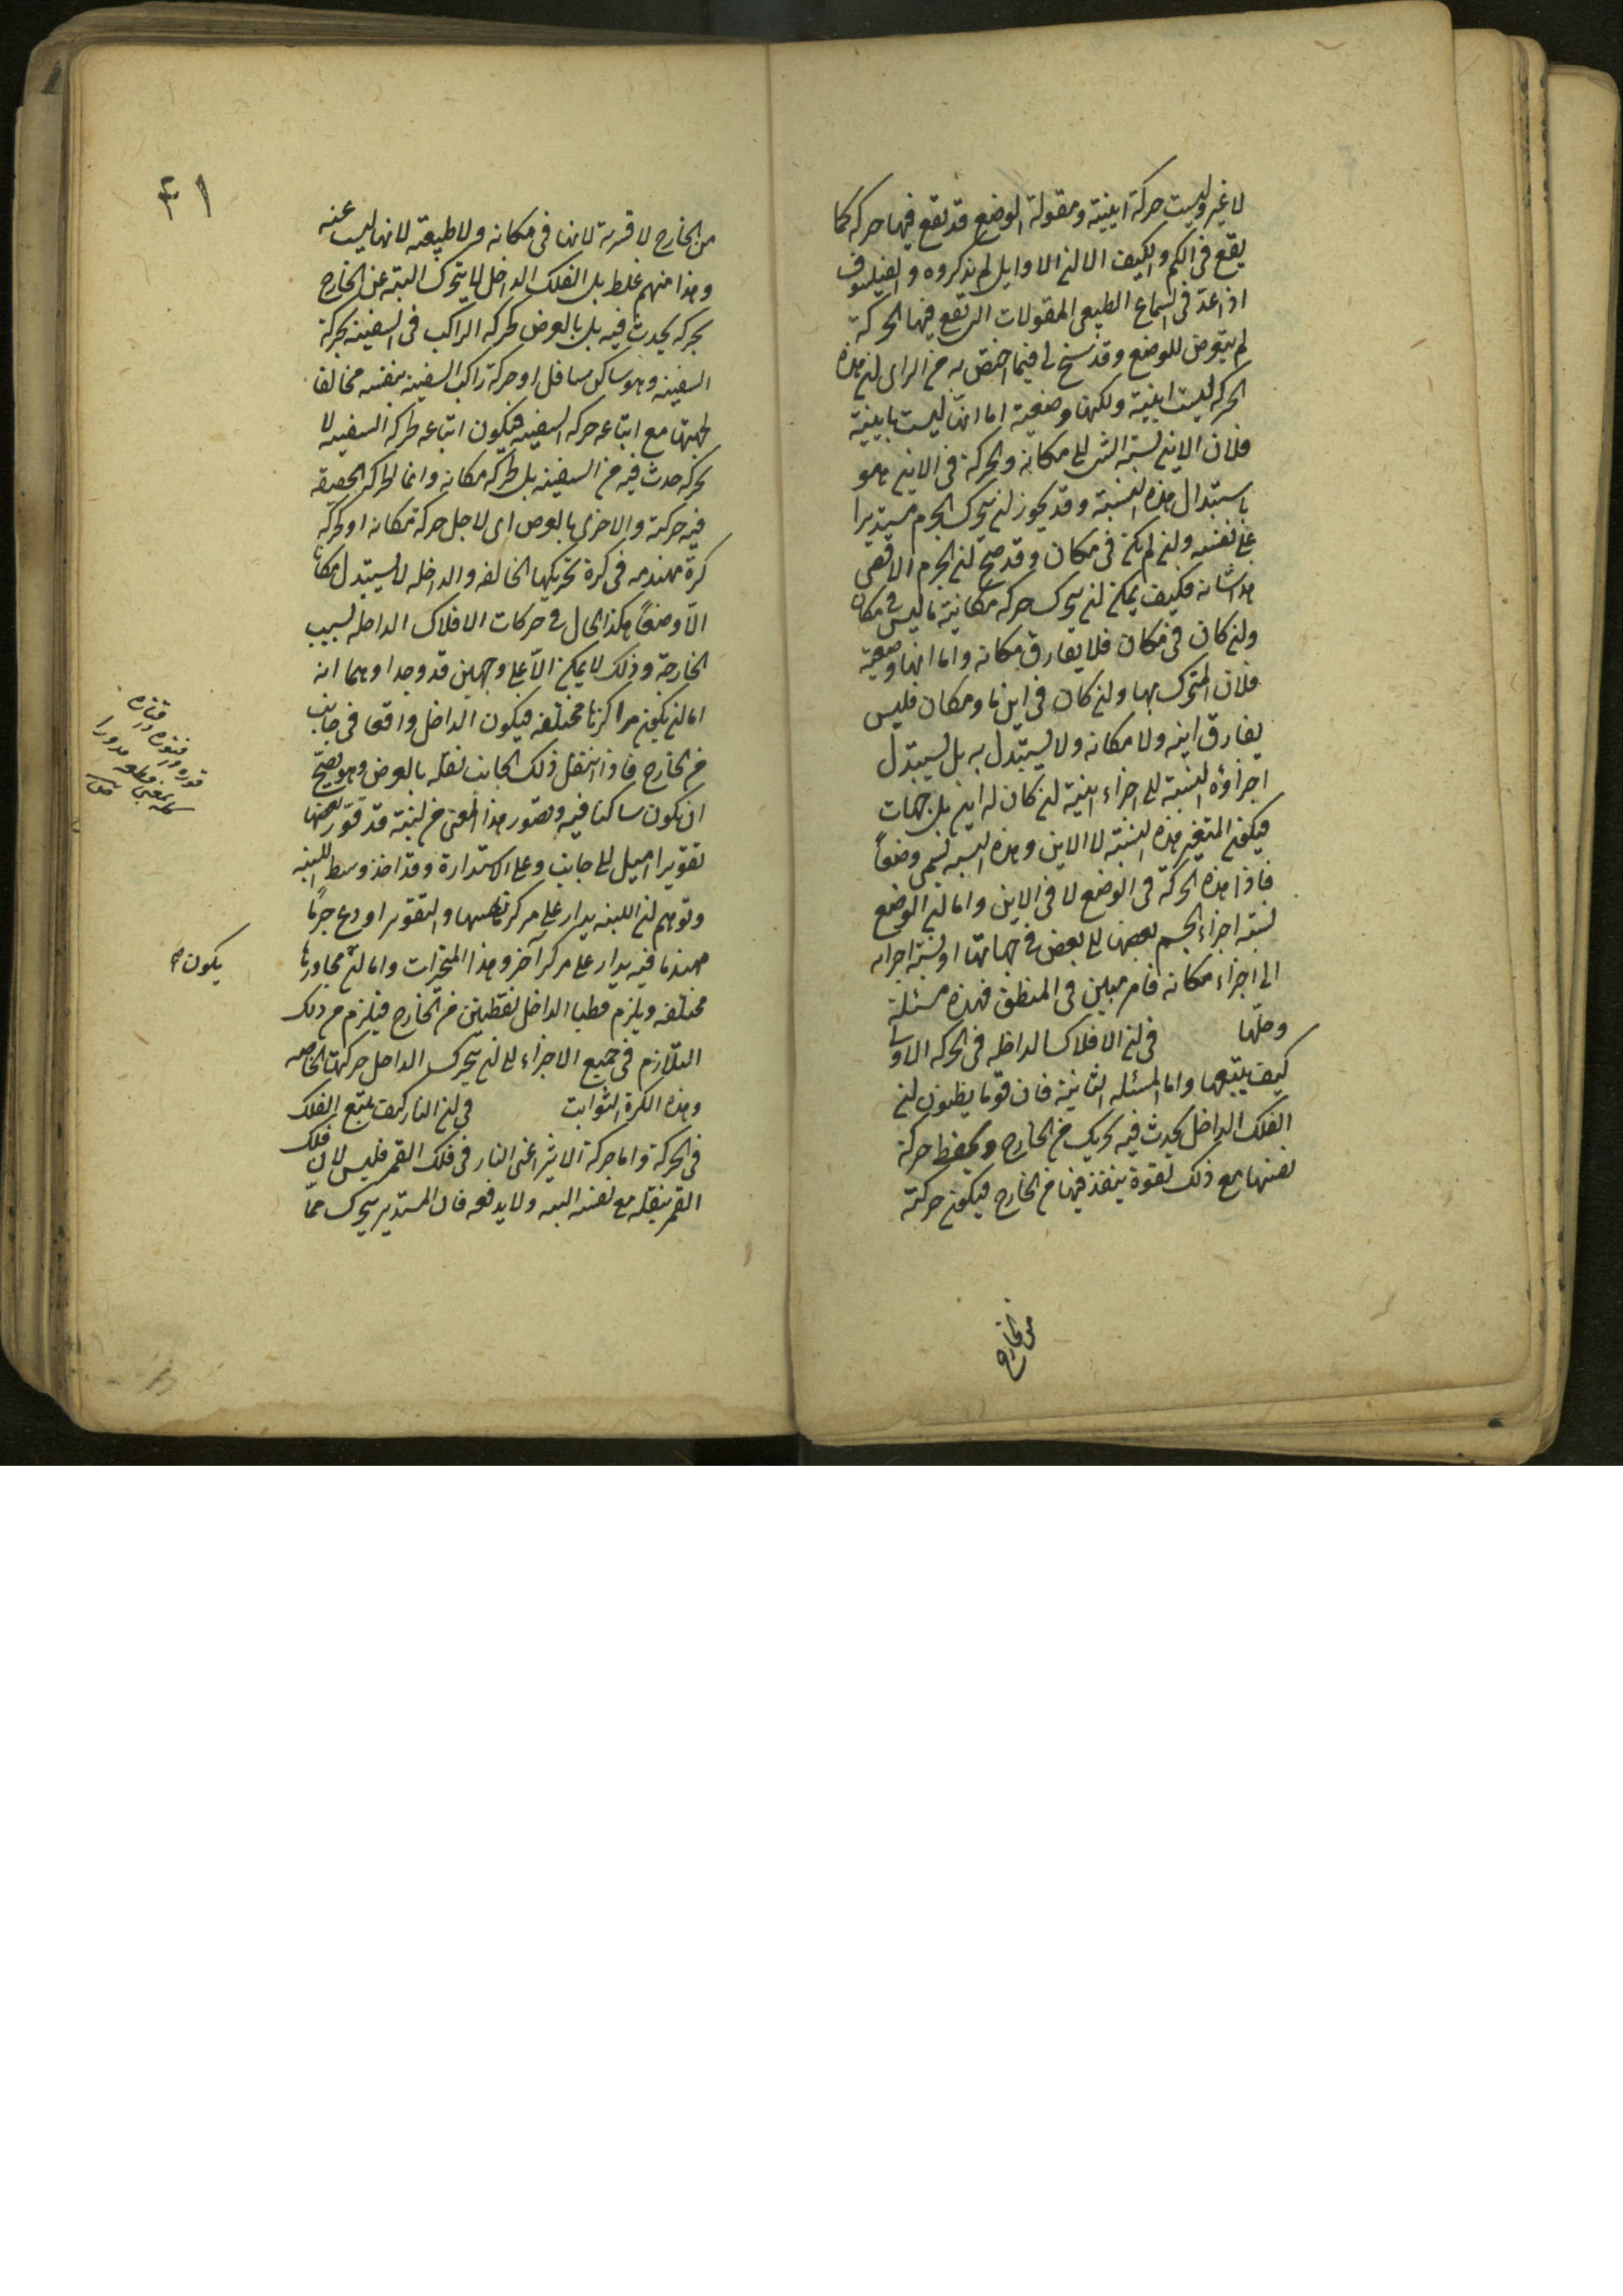 لا غير وليست حركة اينية ومقولة الوضع قد تقع فيها حركة كما
يقع فى الكم والكيف الا ان الاوايل لم يذكروه والفيلسوف
اذ اعدّ فى السماع الطبيعى المقولات التى تقع فيها الحركة
لم يتعرض للوضع وقد سنح لى فيما اختص به من الراى ان هذه
الحركة ليست اينية ولكنها وضعية اما انها ليست باينية
فلان الاين نسبة الشى الى مكانه والحركة فى الاين هو
باستبدال هذه النسبة وقد يجوز ان يتحرك الجرم مستديرا
على نفسه وان لم يكن فى مكان وقد صح ان الجرم الاقصى
هذا شانه فكيف يمكن ان يتحرك حركة مكانية ما ليس فى مكان
وان كان فى مكان فلا يفارق مكانه واما انها وضعية
فلان المتحرك بها وان كان فى اين ما ومكان فليس
يفارق اينه ولا مكانه ولا يستبدل به بل يستبدل
اجزاؤه النسبة الى اجزاء اينية ان كان له اين بل جهات
فيكون المتغير هذه النسبة لا الاين وهذه النسبه تسمى وضعاً
فاذا هذه الحركة فى الوضع لا فى الاين واما ان الوضع
نسبة اجزاء الجسم بعضها الى بعض فى جهاتها او نسبة اجزائه
الى اجزاء مكانه فامر مبين فى المنطق فهذه مسئلة
وحلّها فى ان الافلاك الداخله فى الحركه الاولى
كيف يتبعها واما المسئله الثانية فان قوما يظنون ان
الفلك الداخل يحدث فيه تحريك من الخارج ويحفظ حركة
نفسها مع ذلك لقوة ينفذ فيها من الخارج فيكون حركته
من الخارج
٤١
من الخارج لا قسرية لانها فى مكانه ولا طبيعته لانها ليست عنه
وهذا منهم غلط بل الفلك الداخل لا يتحرك البتة عن الخارج
بحركه يحدث فيه بل بالعرض كحركه الراكب فى السفينه بحركة
السفينه وهو ساكن مسافل او حركة راكب السفينه بنفسه مخالفا
لجهتها مع اتباعه حركه السفينه فيكون اتباعه لحركه السفينه لا
لحركه حدث فيه من السفينه بل لحركه مكانه وانما الحركه الحقيقه
فيه حركته والاخرى بالعرض اى لاجل حركة مكانه او كحركه
كرة مهندمه فى كرة تحريكها الخالفه والداخله لا يستبدل مكانا
الا وضعاً هكذا الحال فى حركات الافلاك الداخله لسبب
الخارجة وذلك لا يمكن الا على وجهين قد وجدا وهما انه
اما ان يكون مراكزها مختلفه فيكون الداخل واقعا فى جانب
من الخارج فاذا انتقل ذلك الجانب نقله بالعرض وهو يصح
ان يكون ساكنا فيه وتصور هذا المعنى من لبنة قد قوّر بعضها
تقويرا اميل الى جانب وعلى الاستدارة وقد اخذ وسط اللبنه
وتوهم ان اللبنه يدار على مركز نفسها والتقوير اودع جرما
مهندما فيه يدار على مركز آخر وهذا المتحيزات واما ان محاورها
مختلفه ويلزم قطبا الداخل نقطتين من الخارج فيلزم من ذلك
التلازم فى جميع الاجزاء الى ان يتحرك الداخل حركتها الخاصه
وهذه الكرة الثوابت فى ان النار كيف يتبع الفلك
فى الحركة واما حركة الاثير اعنى النار فى فلك القمر فليس لان فلك
القمر ينقله مع نفسه البته ولا يدفعه فان المستدير يتحرك مما
يكون